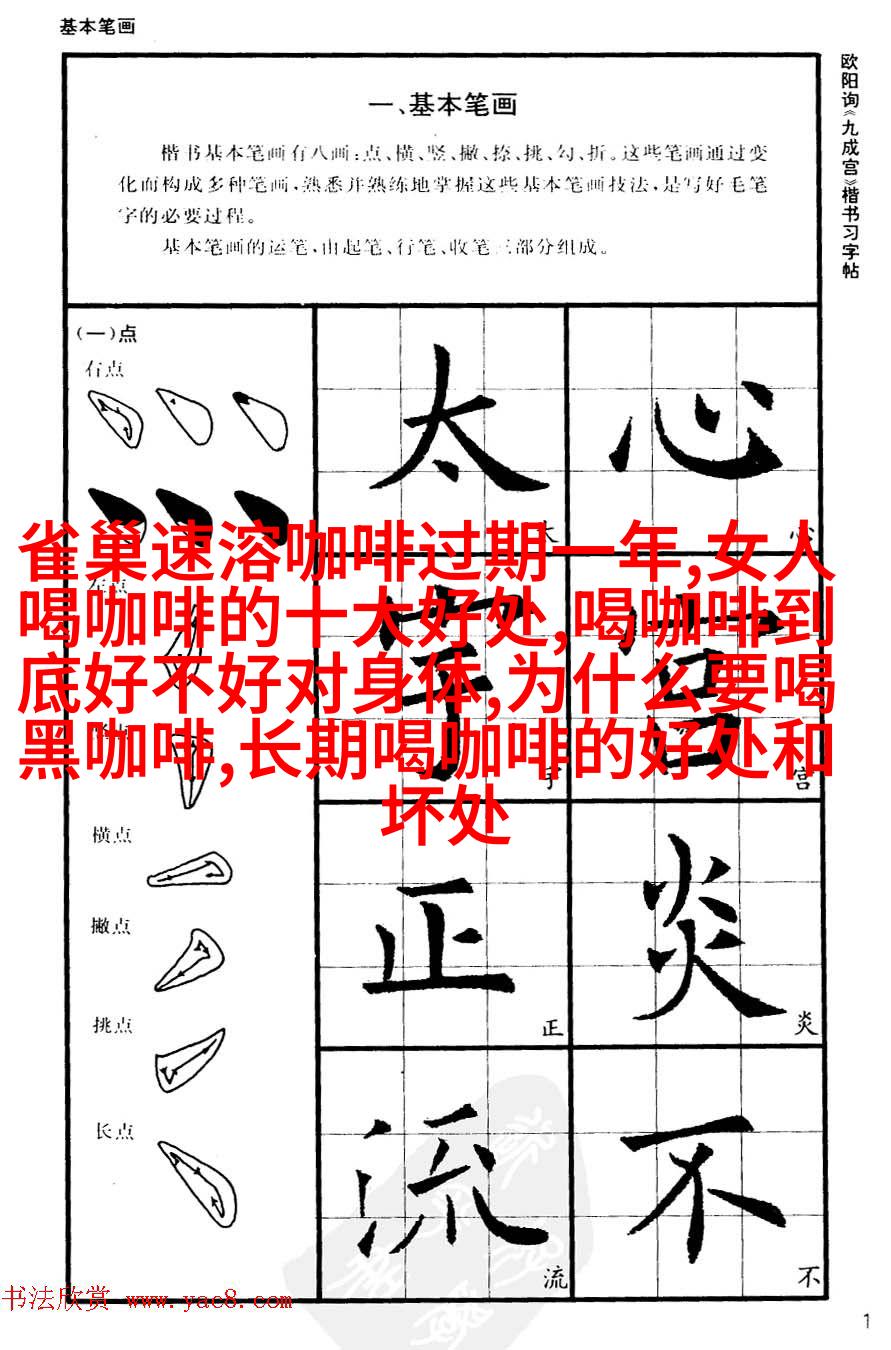 基本笔画
欧阳询《九成宫》楷书习字帖
一、基本笔画
楷书基本笔画有八画:点、横、竖、撇、捺、挑、勾、折。这些笔画通过变
化而构成多种笔画,熟悉并熟练地掌握这些基本笔画技法,是写好毛笔
字的必要过程。
基本笔画的运笔,由起笔、行笔、收笔三部分组成。
(一)点
右点
太
心
心
雀巢速溶咖啡过期一年,女人
喝咖啡的十大好处,喝咖啡到
底好不好对身体,为什么要喝
黑咖啡,长期喝咖啡的好处和
坏处
宇
宫
宫
横点
撇点
挑点
长点
正
正
炎
炎
流
流
不
不
书法欣赏 www.yac8.com
1